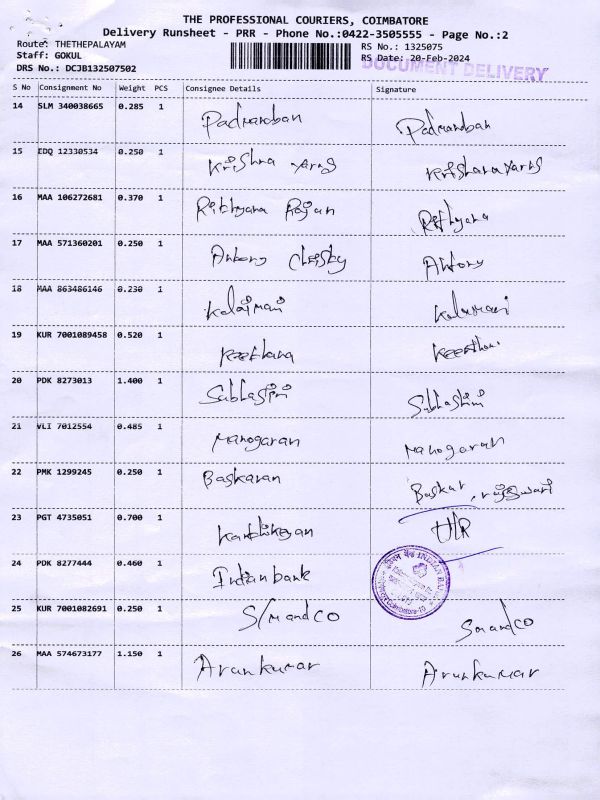 THE PROFESSIONAL COURIERS, COIMBATORE
Delivery Runsheet - PRR - Phone No.:0422-3505555 - Page No.:2
Route: THETHEPALAYAM
Staff: GOKUL
DRS No.: DCJB132507502
RS No.: 1325075
RS Date: 20-Feb-2024
DOCUMENT DELIVERY
S No Consignment No Weight PCS Consignee Details Signature
14 SLM 340038665 0.285 1 Padmanaban Padmanaban
15 EDQ 12330534 0.250 1 Krishna
16 MAA 106272681 0.370 1 Rajan
17 MAA 571360201 0.250 1 Antony Antony
18 MAA 863486146 0.230 1 Kalaimani
19 KUR 7001089458 0.520 1 Keerthana
20 PDK 8273013 1.400 1 Subhasini Subhasini
21 VLI 7012554 0.485 1 Manogaran Manogaran
22 PMK 1299245 0.250 1 Baskaran Baskar
23 PGT 4735051 0.700 1 Karthikeyan
24 PDK 8277444 0.460 1 Indianbank INDIAN BANK
25 KUR 7001082691 0.250 1 S/mandCO SmandCO
26 MAA 574673177 1.150 1 Arunkumar Arunkumar